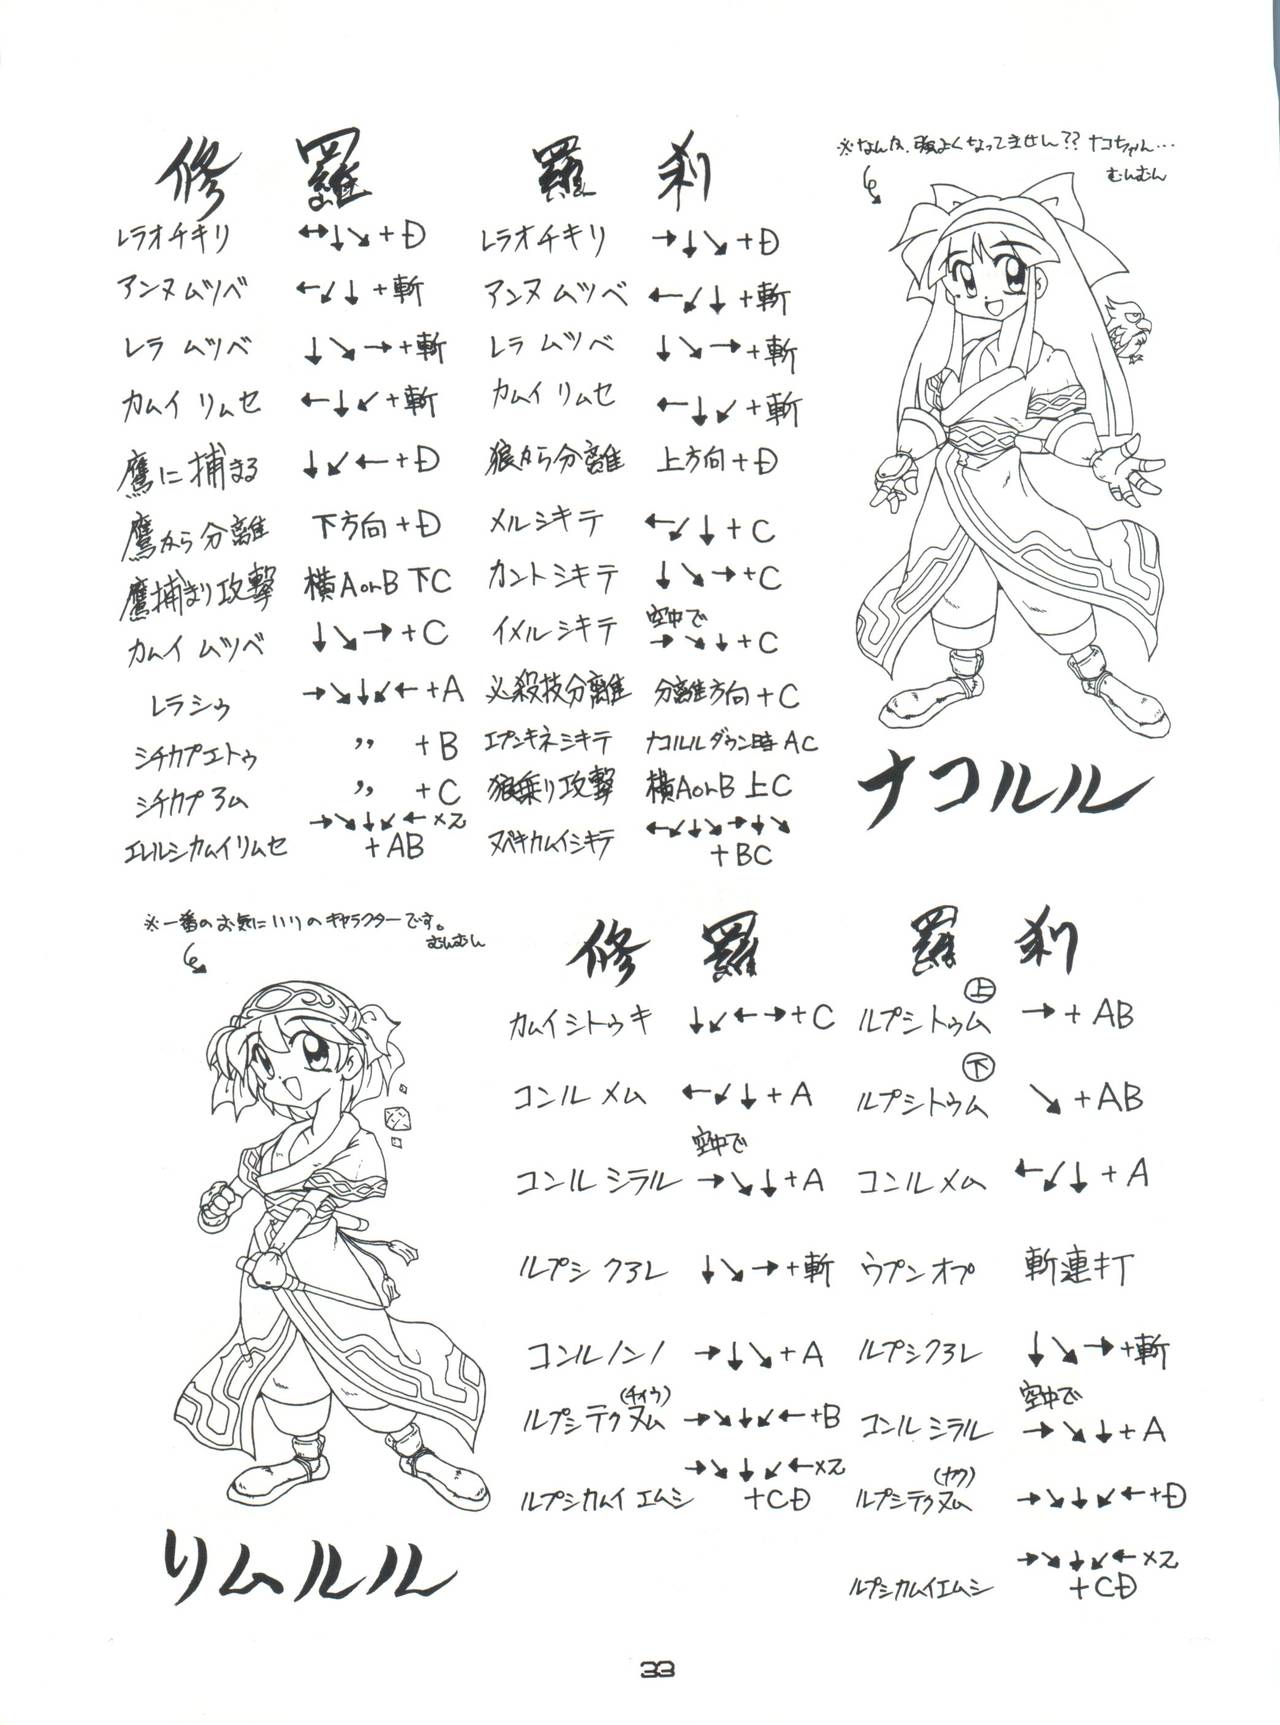 修羅 羅刹
※なんか、強よくなってません?? ナコちゃん…
むんむん
レラオチキリ ↔↓↘+D レラオチキリ →↓↘+D
アンヌムツベ ←↙↓+斬 アンヌムツベ ←↙↓+斬
レラ ムツベ ↓↘→+斬 レラ ムツベ ↓↘→+斬
カムイ リムセ ←↓↙+斬 カムイ リムセ ←↓↙+斬
鷹に捕まる ↓↙←+D 狼から分離 上方向+D
鷹から分離 下方向+D メルシキテ ←↙↓+C
鷹捕まり攻撃 横AorB 下C カントシキテ ↓↘→+C
カムイ ムツベ ↓↘→+C イメルシキテ 空中で →↘↓+C
レラシゥ →↘↓↙←+A 必殺技分離 分離方向+C
シチカプエトゥ 〃 +B エプンキネシキテ ナコルルダウン時AC
シチカプヨム 〃 +C 狼乗り攻撃 横AorB 上C
エレルシカムイリムセ →↘↓↙←×2 +AB ヌペキカムイシキテ ←↙↓↘→↓↘ +BC
ナコルル
※一番のお気にいりのキャラクターです。
むんむん
修羅 羅刹
カムイシトゥキ ↓↙←→+C ルプシトゥム 上 →+AB
コンルメム ←↙↓+A ルプシトゥム 下 ↘+AB
コンル シラル 空中で →↘↓+A コンルメム ←↙↓+A
ルプシ クヨレ ↓↘→+斬 ウプンオプ 斬連打
コンルノンノ →↓↘+A ルプシクヨレ ↓↘→+斬
ルプシテクヌム (チイウ) →↘↓↙←+B コンル シラル 空中で →↘↓+A
ルプシカムイエムシ →↘↓↙←×2 +CD ルプシテクヌム (ヤク) →↘↓↙←+D
ルプシカムイエムシ →↘↓↙←×2 +CD
リムルル
33